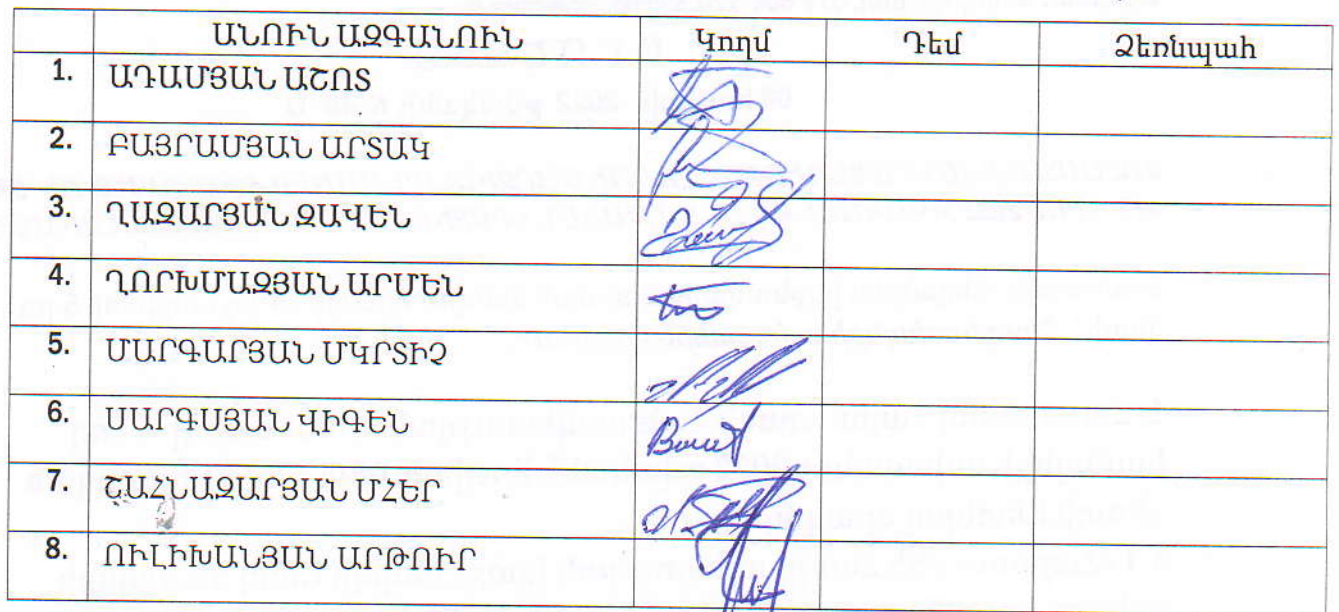 ԱՆՈՒՆ ԱԶԳԱՆՈՒՆ Կողմ Դեմ Ձեռնպահ
1. ԱԴԱՄՅԱՆ ԱՇՈՏ
2. ԲԱՅՐԱՄՅԱՆ ԱՐՏԱԿ
3. ՂԱԶԱՐՅԱՆ ԶԱՎԵՆ
4. ՂՈՐԽՄԱԶՅԱՆ ԱՐՄԵՆ
5. ՄԱՐԳԱՐՅԱՆ ՄԿՐՏԻՉ
6. ՍԱՐԳՍՅԱՆ ՎԻԳԵՆ
7. ՇԱՀՆԱԶԱՐՅԱՆ ՄՀԵՐ
8. ՈՒԼԻԽԱՆՅԱՆ ԱՐԹՈՒՐ